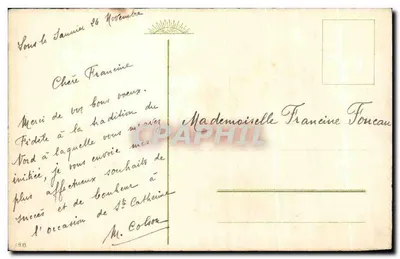 Lons le Saunier 24 Novembre
Chère Francine
Merci de vos bons voeux.
Fidèle à la tradition du
Nord à laquelle vous m'avez
initiée, je vous envoie mes
plus affectueux souhaits de
succès et de bonheur à
l'occasion de Ste Catherine
M. Colson
Mademoiselle Francine Foncau
CPAPHIL